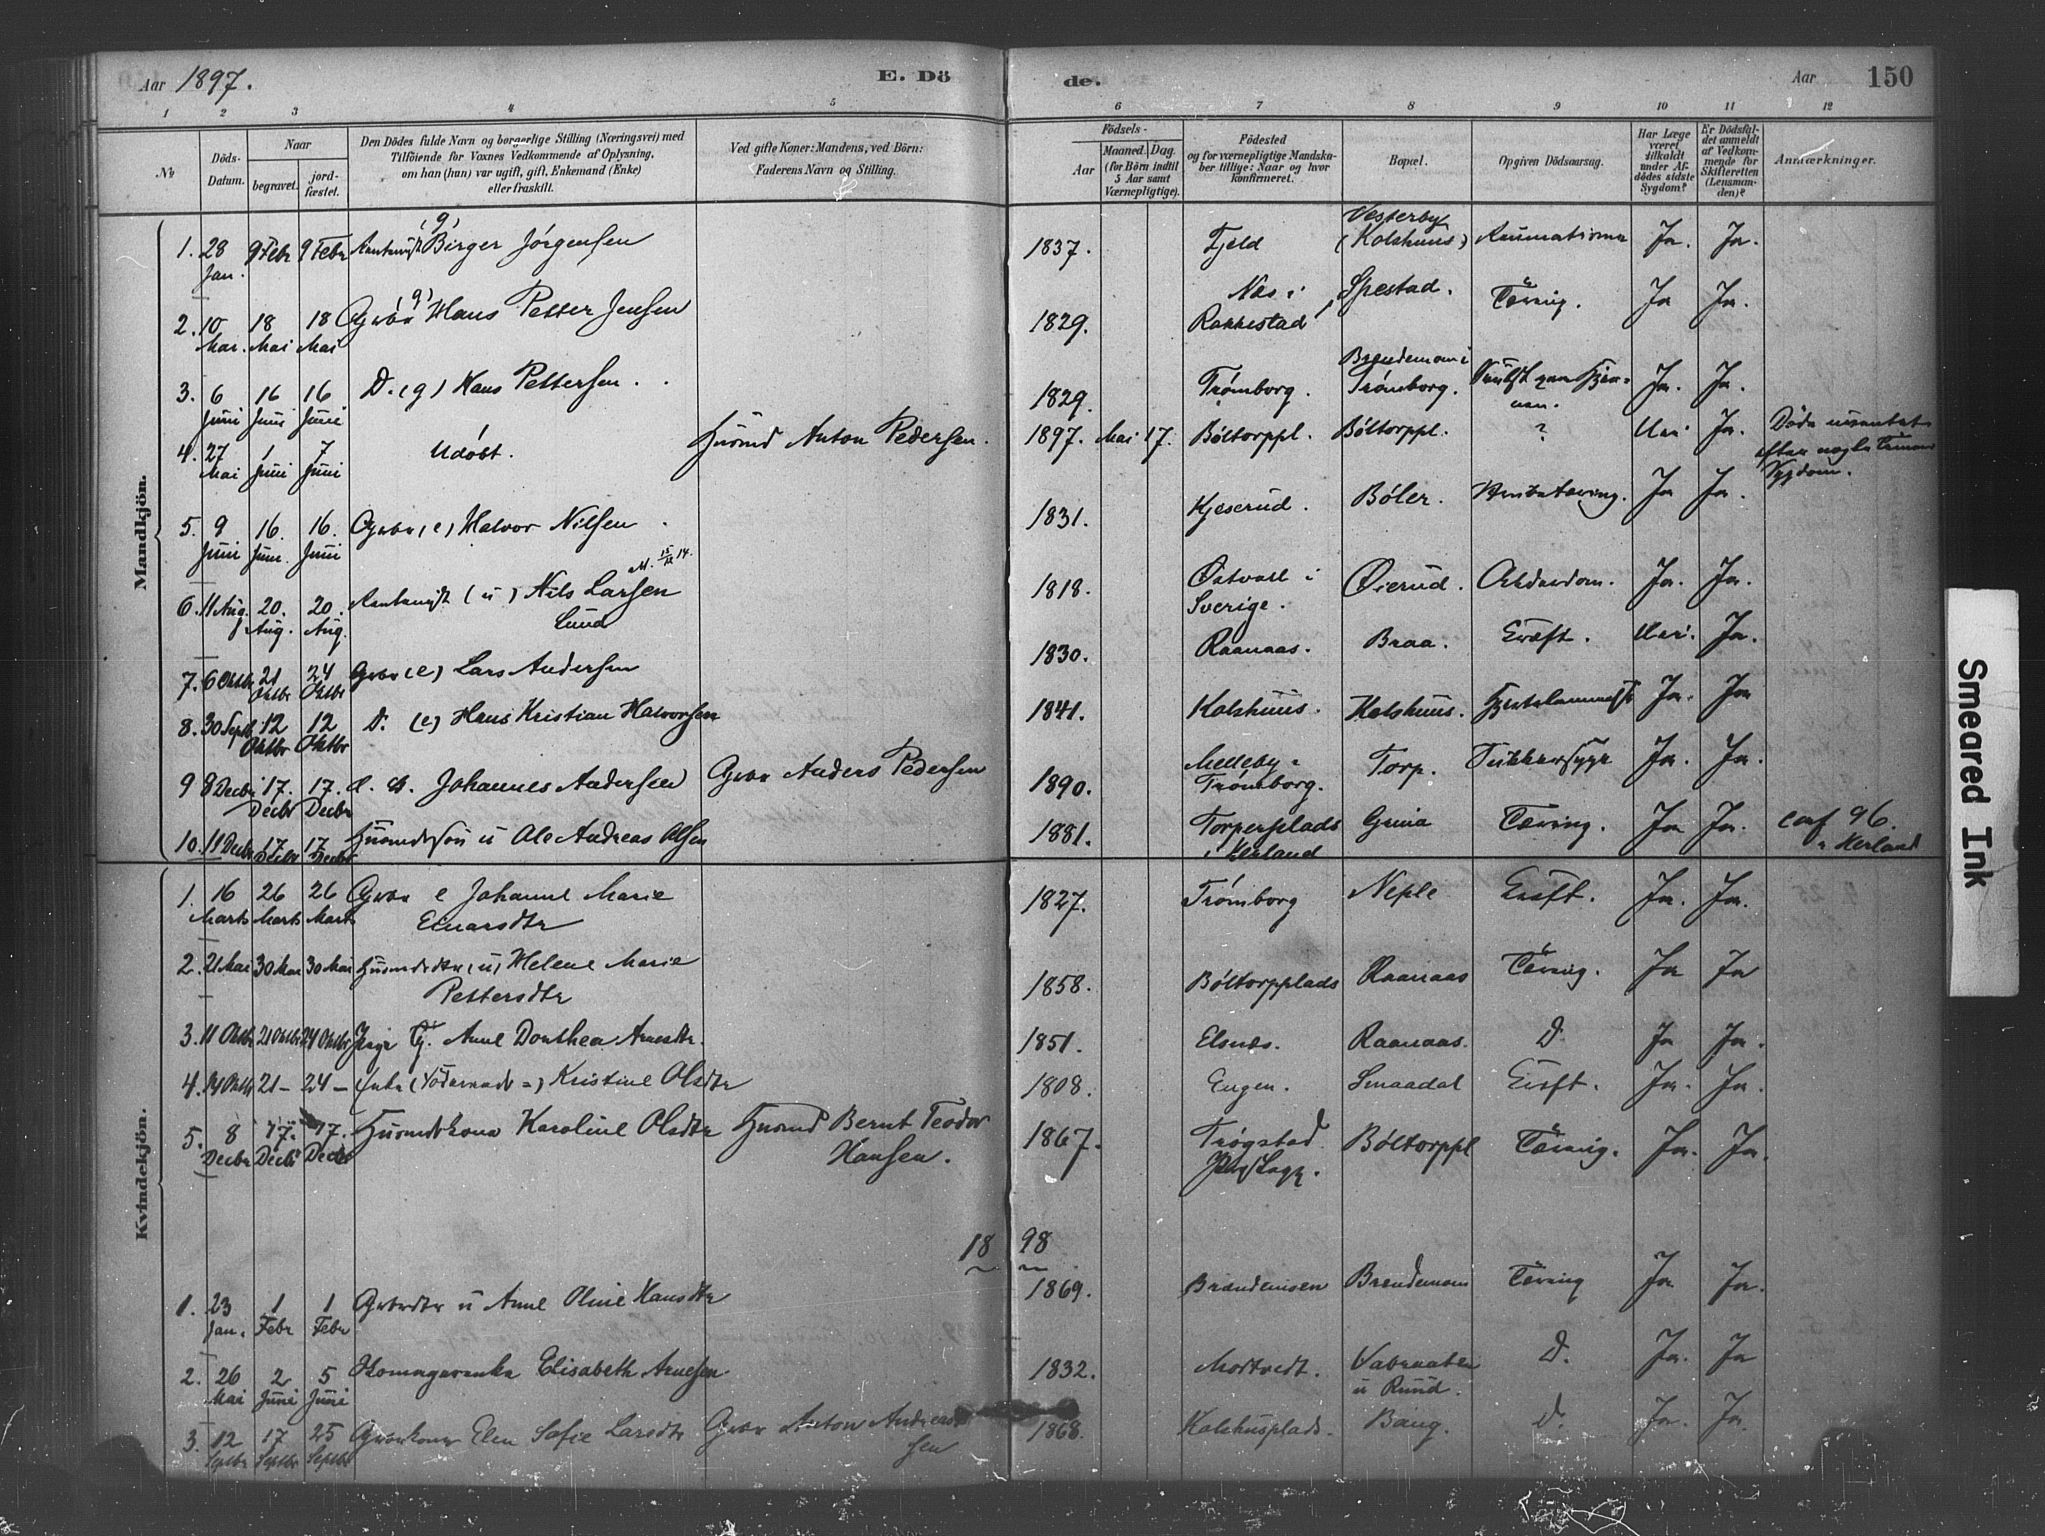 Aar 1897. E. Dö de. Aar 150
1 2 3 4 5 6 7 8 9 10 11 12
№
Döds-Datum.
Naar
begravet.
jordfæstet.
Den Dödes fulde Navn og borgerlige Stilling (Næringsvei) med
Tilföiende for Voxnes Vedkommende af Oplysning,
om han (hun) var ugift, gift, Enkemand (Enke)
eller fraskilt.
Ved gifte Koner: Mandens, ved Börn:
Faderens Navn og Stilling.
Födsels-
Aar
Maaned. Dag.
(for Börn indtil
5 Aar samt
Værnepligtige).
Födested
og for værnepligtige Mandska-
ber tillige: Naar og hvor
konfirmeret.
Bopæl.
Opgiven Dödsaarsag.
Har Læge
været
tilkaldt
under Af-
dödes sidste
Sygdom?
Er Dödsfal-
det anmeldt
af Vedkom-
mende for
Skifteretten
(Lensman-
den)?
Anmærkninger.
Mandkjön.
1. 28 Jan. 9 Febr 9 Febr (g) Birger Jørgensen 1837. Fjeld Vesterby (Kolshuus) Ja. Ja.
2. 10 Mai. 18 Mai 18 Mai Grbr (g) Hans Petter Jensen 1829. Næs i Rakkestad Spestad. Tæring. Ja Ja.
3. 6 Juni 16 Juni 16 Juni D. (g) Hans Pettersen. 1829. Trømborg. Brændemoen i Trømborg. Ja. Ja.
4. 27 Mai 1 Juni 7 Juni Udøbt. Husmd Anton Pedersen. 1897. Mai 17. Bøltorppl. Bøltorppl. ? Nei Ja. Døde uventet efter nogle Timers Sygdom.
5. 9 Juni 16. Juni. 16. Juni Grbr (e) Halvor Nilsen 1831. Kjeserud. Bøler. Ja Ja.
6. 11 Aug. 20. Aug. 20. Aug. (u) Nils Larsen Lund 1818. Østvall i Sverige. Øierud. Ja. Ja.
7. 6 Oktbr 21 Oktbr 24 Oktbr Grbr (e) Lars Andersen 1830. Raanaas. Braa. Nei. Ja.
8. 30 Septb 12 Oktbr 12 Oktbr D. (e) Hans Kristian Halvorsen 1841. Kolshuus. Kolshuus. Ja. Ja
9 8 Decbr 17. Decbr 17. Decbr Johannes Andersen Grbr Anders Pedersen 1890. Melleby i Trømborg. Torp. Sukkersyge Ja. Ja.
10. 11 Decbr 17 Decbr 17 Decbr Husmdssøn u Ole Andreas Olsen 1881. Torperplads i Herland Grina Tæring. Ja Ja. conf 96. i Herland
Kvindekjön.
1. 16 Marts 26 Marts 26 Marts Grbr e Johanne Marie Einarsdtr 1827. Trømborg Neple Ja. Ja.
2. 21 Mai 30 Mai 30 Mai Husmdsdtr (u) Helene Marie Pettersdtr 1858. Bøltorpplads Raanaas Tæring. Ja Ja
3. 11 Oktbr 21 Oktbr 24 Oktbr Pige Anne Dorthea Arnesdtr. 1851. Elsnes. Raanaas. D. Ja Ja.
4. 14 Oktbr 21 – 24 – Enke Kristine Olsdtr 1808. Engen. Smaadal Ja. Ja.
5. 8 Decbr 17. Decbr 17. Decbr Husmdskone Karoline Olsdtr Husmd Bernt Teodor Hansen. 1867. Trøgstad Bøltorppl Tæring. Ja. Ja.
18 98
1. 23 Jan. 1 Febr 1 Febr Grbrdtr u Anne Oline Hansdtr 1869. Brændemoen Brændemoen Tæring Ja Ja.
2. 26 Mai 2 Juni 5 Juni Skomagerenke Elisabeth Arnesen 1832. Mortvedt. D. Ja. Ja
3. 12 Septbr 17 Septbr 25 Septbr Grbrkone Elen Sofie Larsdtr Grbr Anton Andersen 1868. Kolshusplads. Baug. D. Ja. Ja.
Smeared Ink